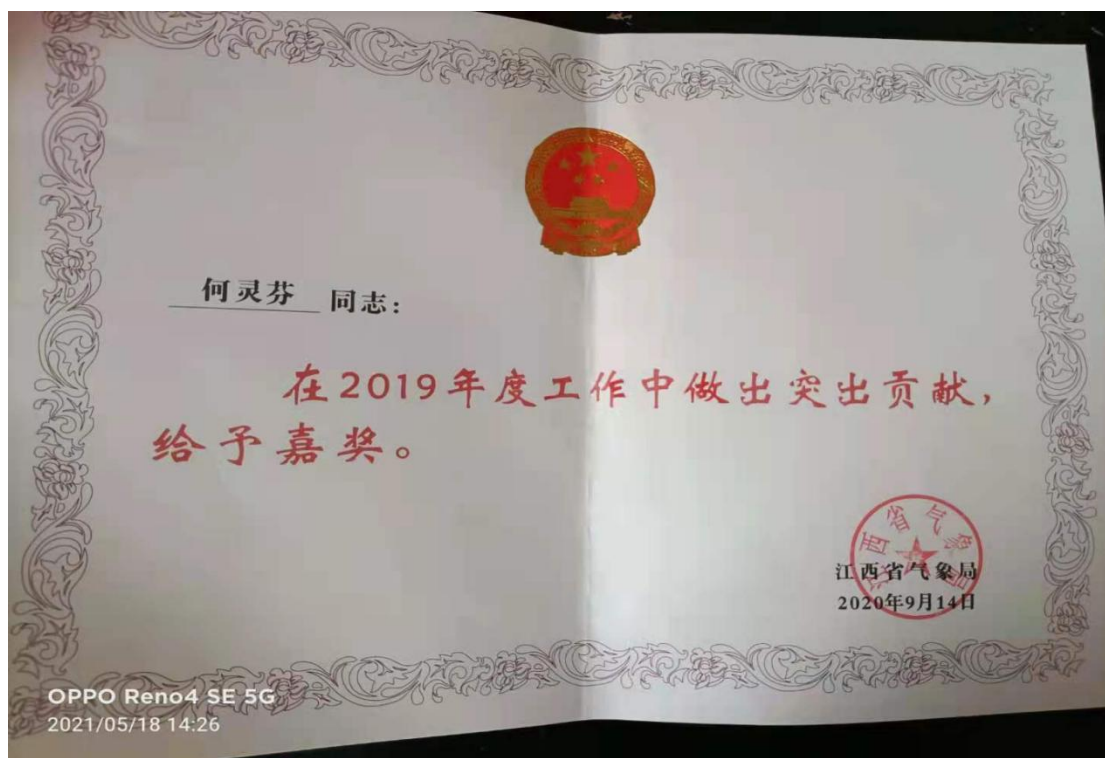 何灵芬 同志:
在2019年度工作中做出突出贡献,
给予嘉奖。
江西省气象局
江西省气象局
2020年9月14日
OPPO Reno4 SE 5G
2021/05/18 14:26